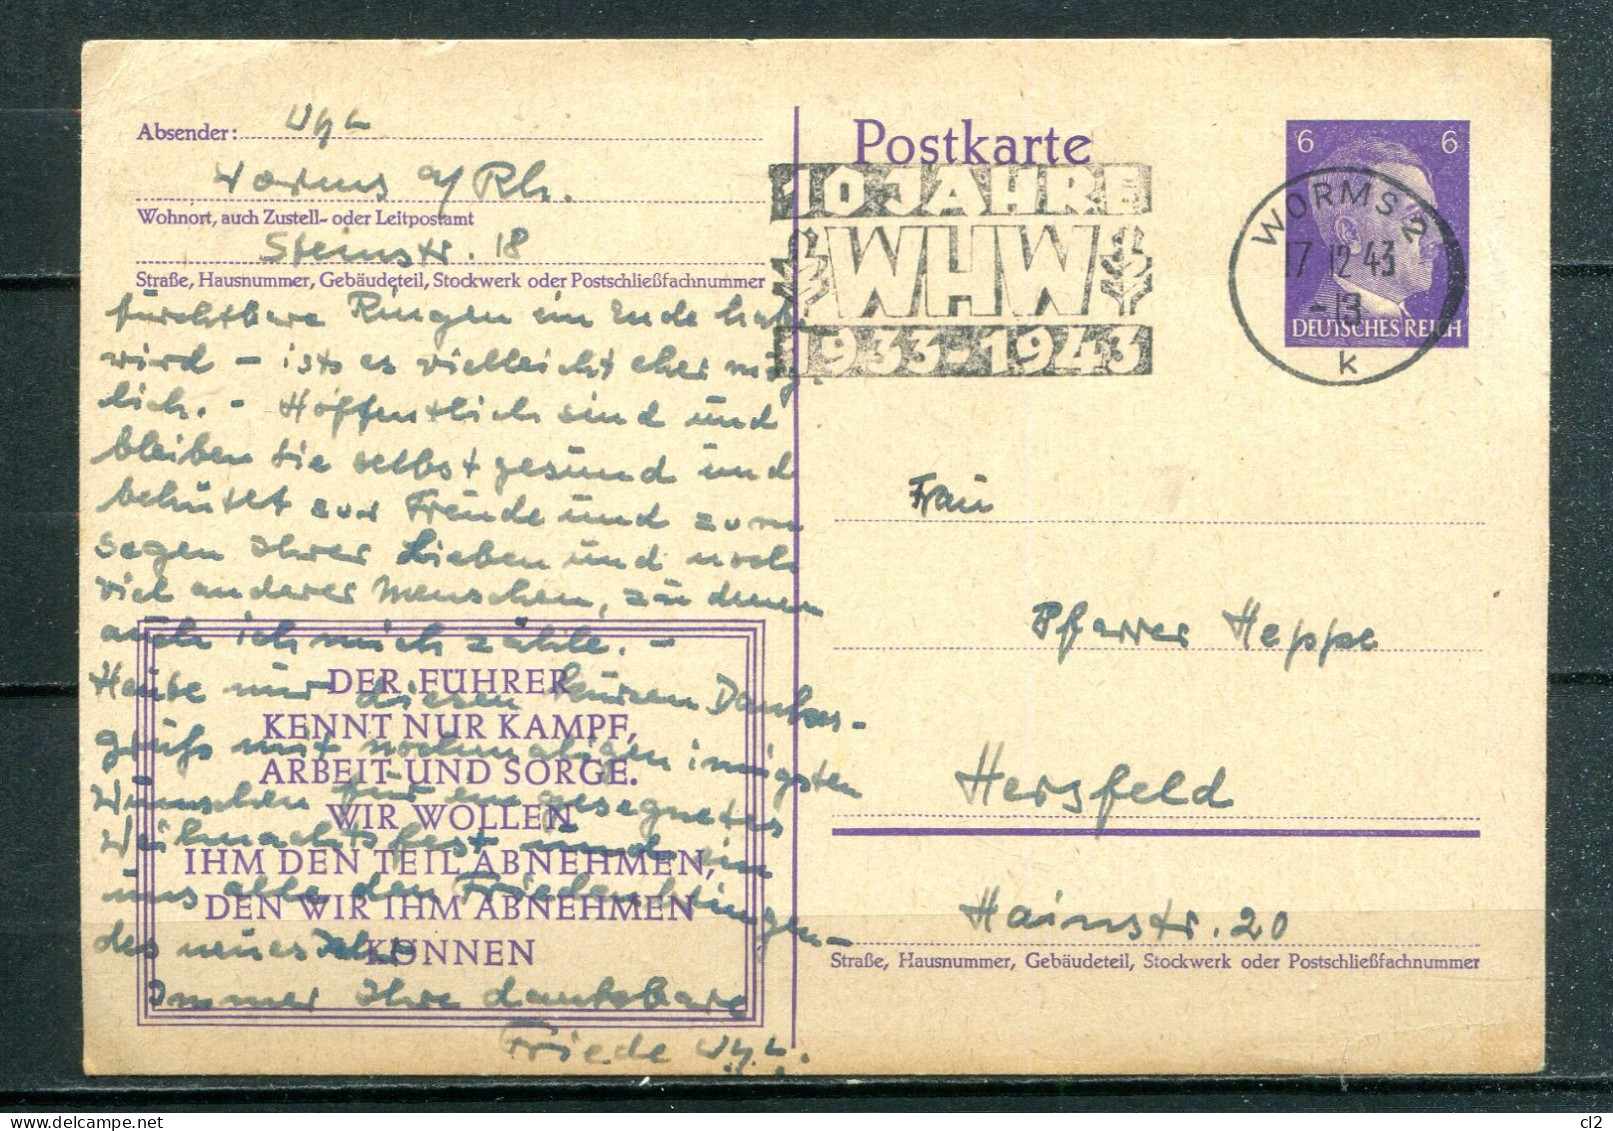 Absender:
Worms a/Rh.
Wohnort, auch Zustell- oder Leitpostamt
Steinstr. 18
Straße, Hausnummer, Gebäudeteil, Stockwerk oder Postschließfachnummer
fürchtbare Ringen ein Ende haben
wird – ists es vielleicht eher mög
lich. – Hoffentlich sind und
bleiben Sie selbst gesund und
behütet zur Freude und zum
Segen Ihrer Lieben und noch
viel anderer Menschen, zu denen
auch ich mich zähle. –
Heute nur diesen kurzen Dankes-
gruß mit nochmaligen innigsten
Wünschen für ein gesegnetes
Weihnachtsfest und ein
uns alle den Frieden bringen-
des neues Jahr
Immer Ihre dankbare
Friede
DER FÜHRER
KENNT NUR KAMPF,
ARBEIT UND SORGE.
WIR WOLLEN
IHM DEN TEIL ABNEHMEN,
DEN WIR IHM ABNEHMEN
KÖNNEN
Postkarte
10 JAHRE
WHW
1933-1943
6 6
DEUTSCHES REICH
WORMS 2
17 12 43
- 13
k
Frau
Pfarrer Heppe
Hersfeld
Hainstr. 20
Straße, Hausnummer, Gebäudeteil, Stockwerk oder Postschließfachnummer
cl2